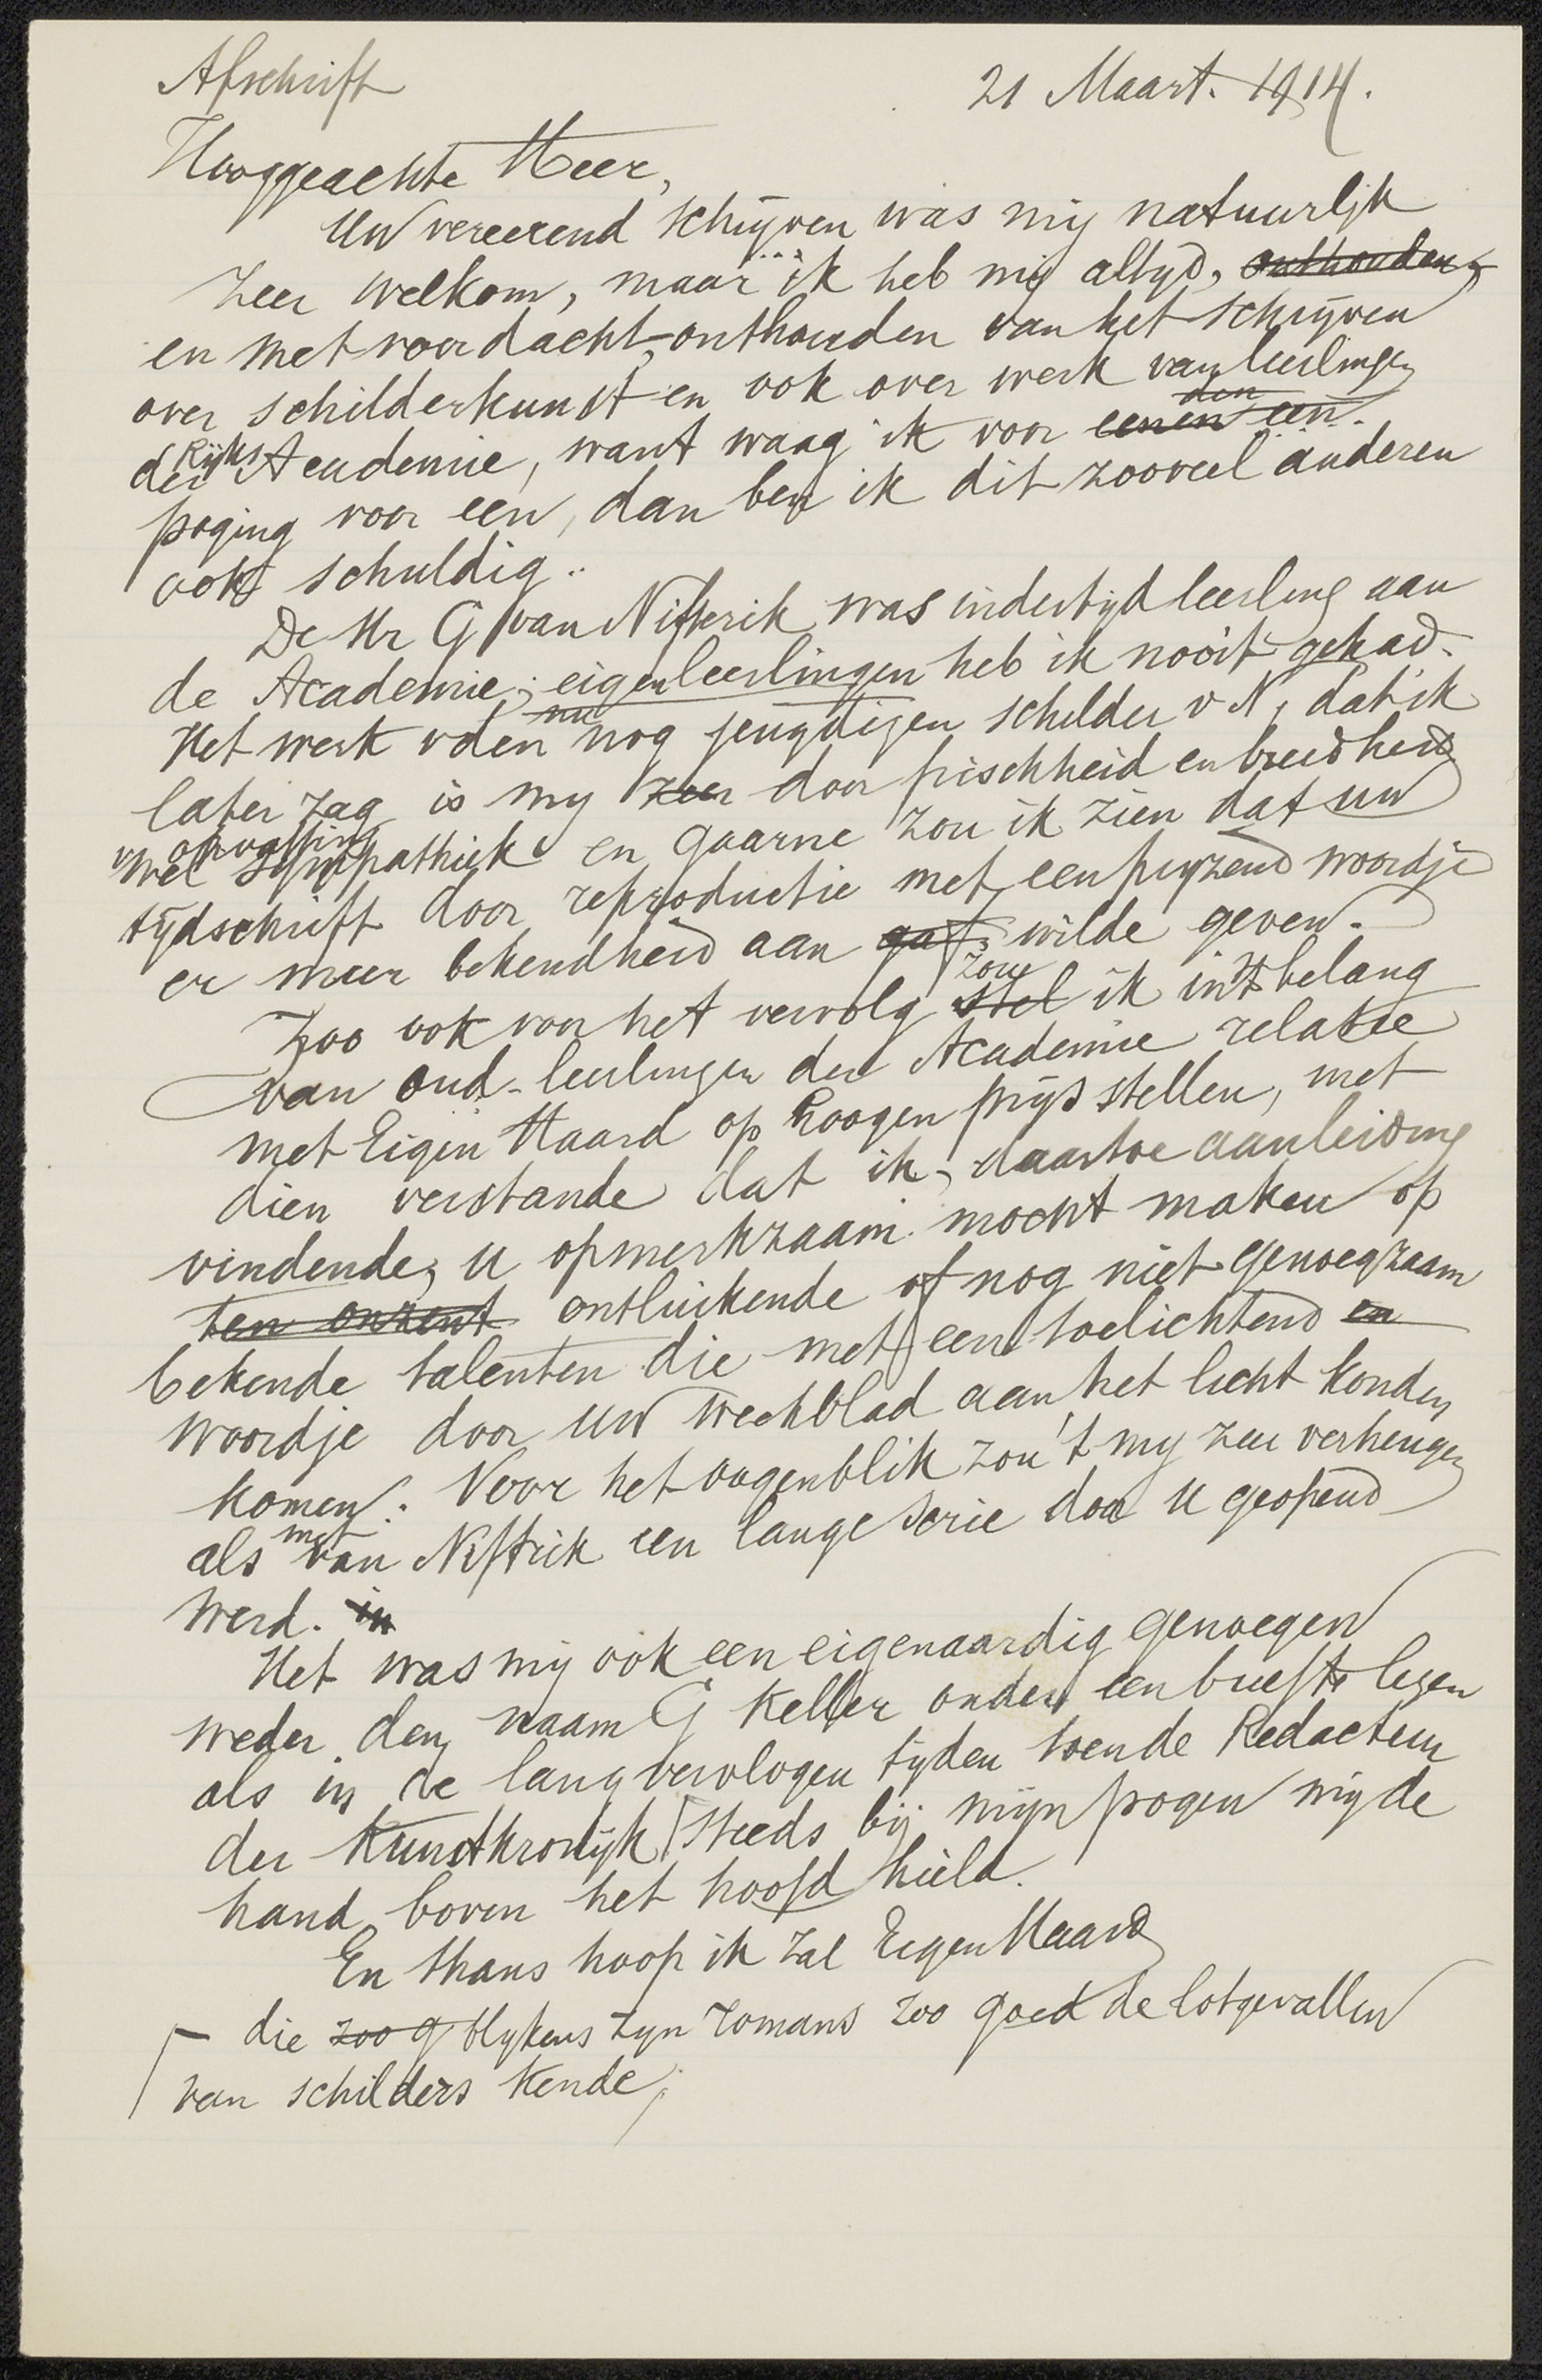 Afschrift
21 Maart. 1914.
Hooggeachte Heer,
Uw vereerend schrijven was mij natuurlijk
zeer welkom, maar ik heb mij altyd, onthouden,
en met voordacht, onthouden van het schrijven
over schilderkunst en ook over werk van leerlingen
der Rijks Academie, want waag ik voor eenen een den
poging voor een, dan ben ik dit zooveel anderen
ook schuldig..
De Hr G van Nifterik was indertijd leerling aan
de Academie; eigen leerlingen heb ik nooit gehad.
Het werk v den nu nog jeugdigen schilder v N, dat ik
later zag is my zeer door frischheid en breedheid
v opvatting
wel sympathiek en gaarne zou ik zien dat uw
tijdschrift door reproductie met een prijzend woordje
er meer bekendheid aan gaf. wilde geven.
Zoo ook voor het vervolg stel zou ik in 't belang
van oud-leerlingen der Academie relatie
met Eigen Haard op hoogen prijs stellen, met
dien verstande dat ik, daartoe aanleiding
vindende, u opmerkzaam mocht maken op
ten onzent ontluikende of nog niet genoegzaam
bekende talenten die met een toelichtend en
woordje door uw weekblad aan het licht konden
komen. Voor het oogenblik zou 't my zeer verheugen
als met van Niftrik een lange serie door u geopend
werd. in
Het was mij ook een eigenaardig genoegen
weder den naam G Keller onder een brief te lezen
als in de lang vervlogen tyden toen de Redacteur
der Kunstkronijk steeds bij mijn pogen mij de
hand boven het hoofd hield.
En thans hoop ik zal Eigen Haard
die zoo g blykens zyn romans zoo goed de lotgevallen
van schilders kende,